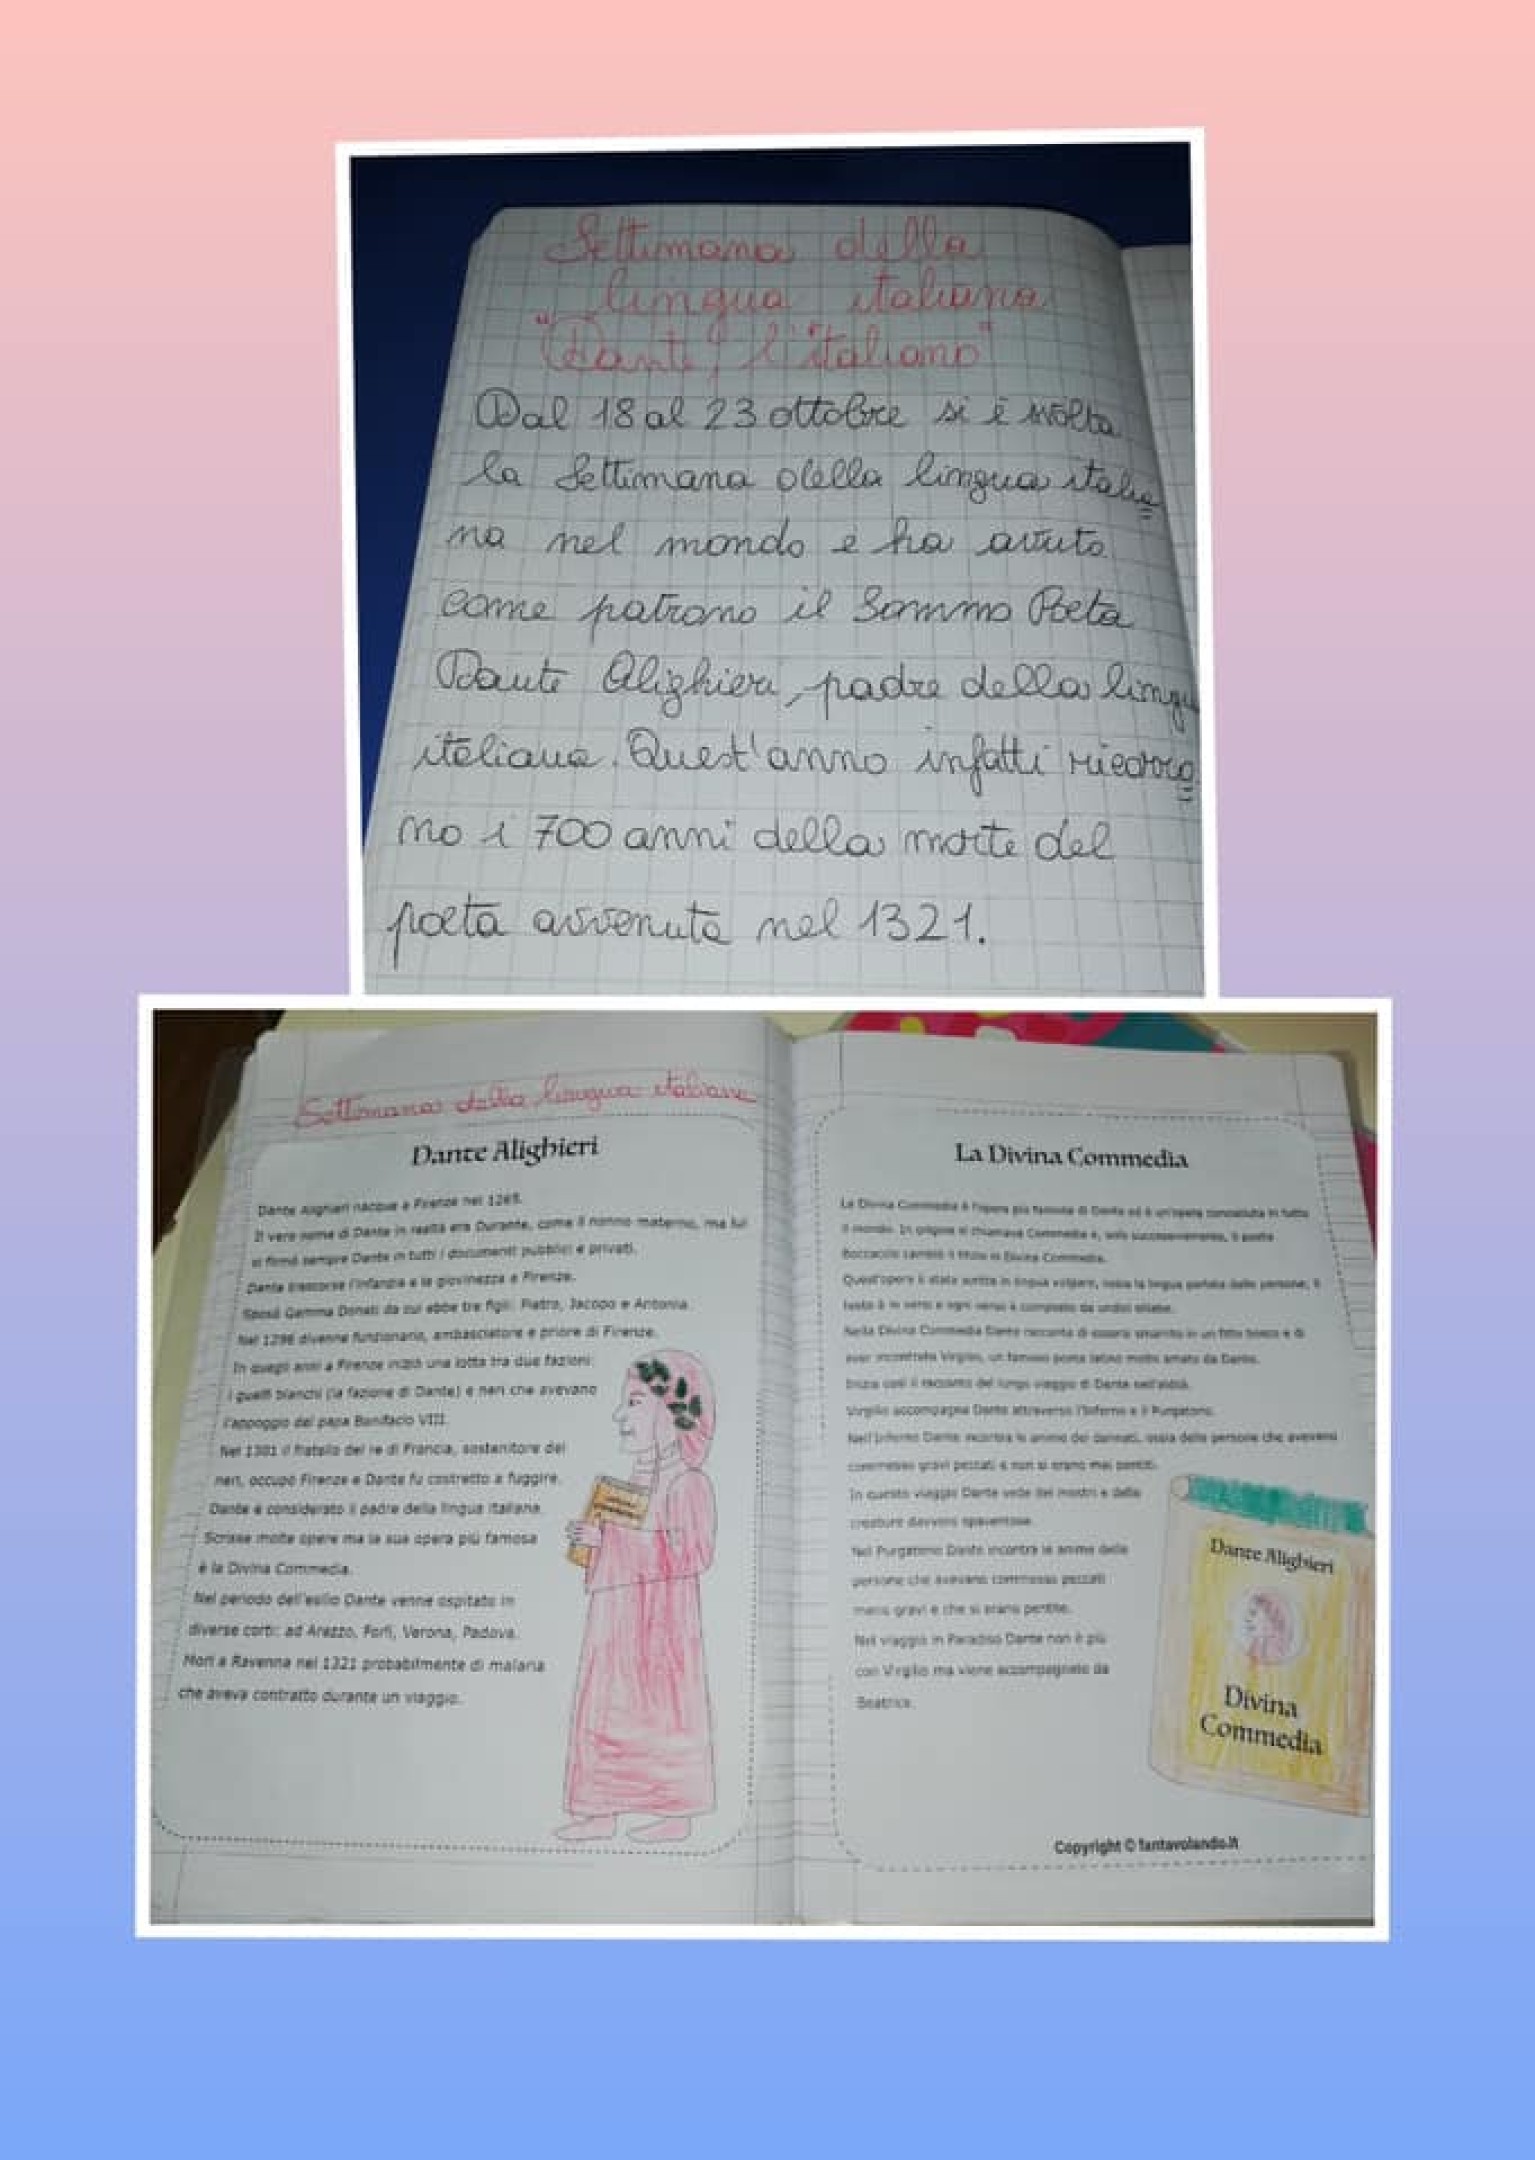 Settimana della
lingua italiana
"Dante, l'italiano"
Dal 18 al 23 ottobre si è svolta
la Settimana della lingua italia
na nel mondo e ha avuto
come patrono il Sommo Poeta
Dante Alighieri, padre della lingua
italiana. Quest'anno infatti ricorro
no i 700 anni della morte del
poeta avvenuta nel 1321.
Settimana della lingua italiana
Dante Alighieri
Dante Alighieri nacque a Firenze nel 1265.
Il vero nome di Dante in realtà era Durante, come il nonno materno, ma lui
si firmò sempre Dante in tutti i documenti pubblici e privati.
Dante trascorse l'infanzia e la giovinezza a Firenze.
Sposò Gemma Donati da cui ebbe tre figli: Pietro, Jacopo e Antonia.
Nel 1296 divenne funzionario, ambasciatore e priore di Firenze.
In quegli anni a Firenze iniziò una lotta tra due fazioni:
i guelfi bianchi (la fazione di Dante) e neri che avevano
l'appoggio del papa Bonifacio VIII.
Nel 1301 il fratello del re di Francia, sostenitore dei
neri, occupò Firenze e Dante fu costretto a fuggire.
Dante è considerato il padre della lingua italiana.
Scrisse molte opere ma la sua opera più famosa
è la Divina Commedia.
Nel periodo dell'esilio Dante venne ospitato in
diverse corti: ad Arezzo, Forlì, Verona, Padova.
Morì a Ravenna nel 1321 probabilmente di malaria
che aveva contratto durante un viaggio.
La Divina Commedia
La Divina Commedia è l'opera più famosa di Dante ed è un'opera conosciuta in tutto
il mondo. In origine si chiamava Commedia e, solo successivamente, il poeta
Boccaccio cambiò il titolo in Divina Commedia.
Quest'opera è stata scritta in lingua volgare, ossia la lingua parlata dalle persone, il
testo è in versi e ogni verso è composto da undici sillabe.
Nella Divina Commedia Dante racconta di essersi smarrito in un fitto bosco e di
aver incontrato Virgilio, un famoso poeta latino molto amato da Dante.
Inizia così il racconto del lungo viaggio di Dante nell'aldilà.
Virgilio accompagna Dante attraverso l'Inferno e il Purgatorio.
Nell'Inferno Dante incontra le anime dei dannati, ossia delle persone che avevano
commesso gravi peccati e non si erano mai pentiti.
In questo viaggio Dante vede dei mostri e delle
creature davvero spaventose.
Nel Purgatorio Dante incontra le anime delle
persone che avevano commesso peccati
meno gravi e che si erano pentite.
Nel viaggio in Paradiso Dante non è più
con Virgilio ma viene accompagnato da
Beatrice.
Dante Alighieri
Divina
Commedia
Copyright © fantavolando.it